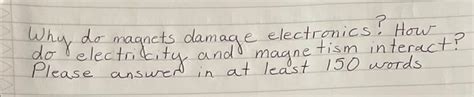 Why do magnets damage electronics? How
do electricity and magnetism interact?
Please answer in at least 150 words